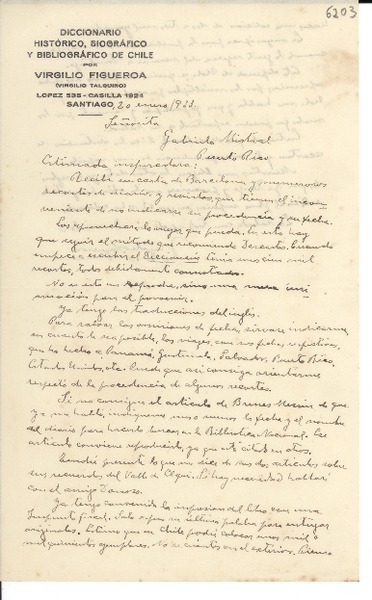 6203
DICCIONARIO
HISTÓRICO, BIOGRÁFICO
Y BIBLIOGRÁFICO DE CHILE
POR
VIRGILIO FIGUEROA
(VIRGILIO TALQUINO)
LOPEZ 535 - CASILLA 1924
SANTIAGO, 20 enero 1933.
Señorita
Gabriela Mistral
Puerto Rico
Estimada inspiradora:
Recibí su carta de Barcelona y numerosos
recortes de diarios y revistas, que tienen el incon-
veniente de no indicarse su procedencia y su fecha.
Los aprovecharé lo mejor que pueda. En esto hay
que seguir el método que recomienda Descartes. Cuando
empecé a escribir el Diccionario tenía más cien mil
recortes, todos debidamente connotados.
No es esto un reproche, sino una mera insi-
nuación para el porvenir.
Ya tengo las traducciones del inglés.
Para salvar las omisiones de fechas, sírvase indicarme,
en cuanto le sea posible, los viajes, con sus fechas, respectivas,
que ha hecho a Panamá, Guatemala, Salvador, Puerto Rico,
Estados Unidos, etc. Puede que así consiga orientarme
respecto de la procedencia de algunos recortes.
Si no consigue el artículo de de que
ya me habló, indíqueme más o menos la fecha y el nombre
del diario para hacerlo buscar en la Biblioteca Nacional. Ese
artículo conviene reproducirlo, ya que está citado en otros.
Tendré presente lo que me dice de sus dos artículos sobre
sus recuerdos del Valle de Elqui. Si hay necesidad hablaré
con el amigo
Ya tengo convenida la impresión del libro con una
imprenta
originales. Estimo que en Chile podré colocar unos mil o
mil quinientos ejemplares. No cuento en el exterior.